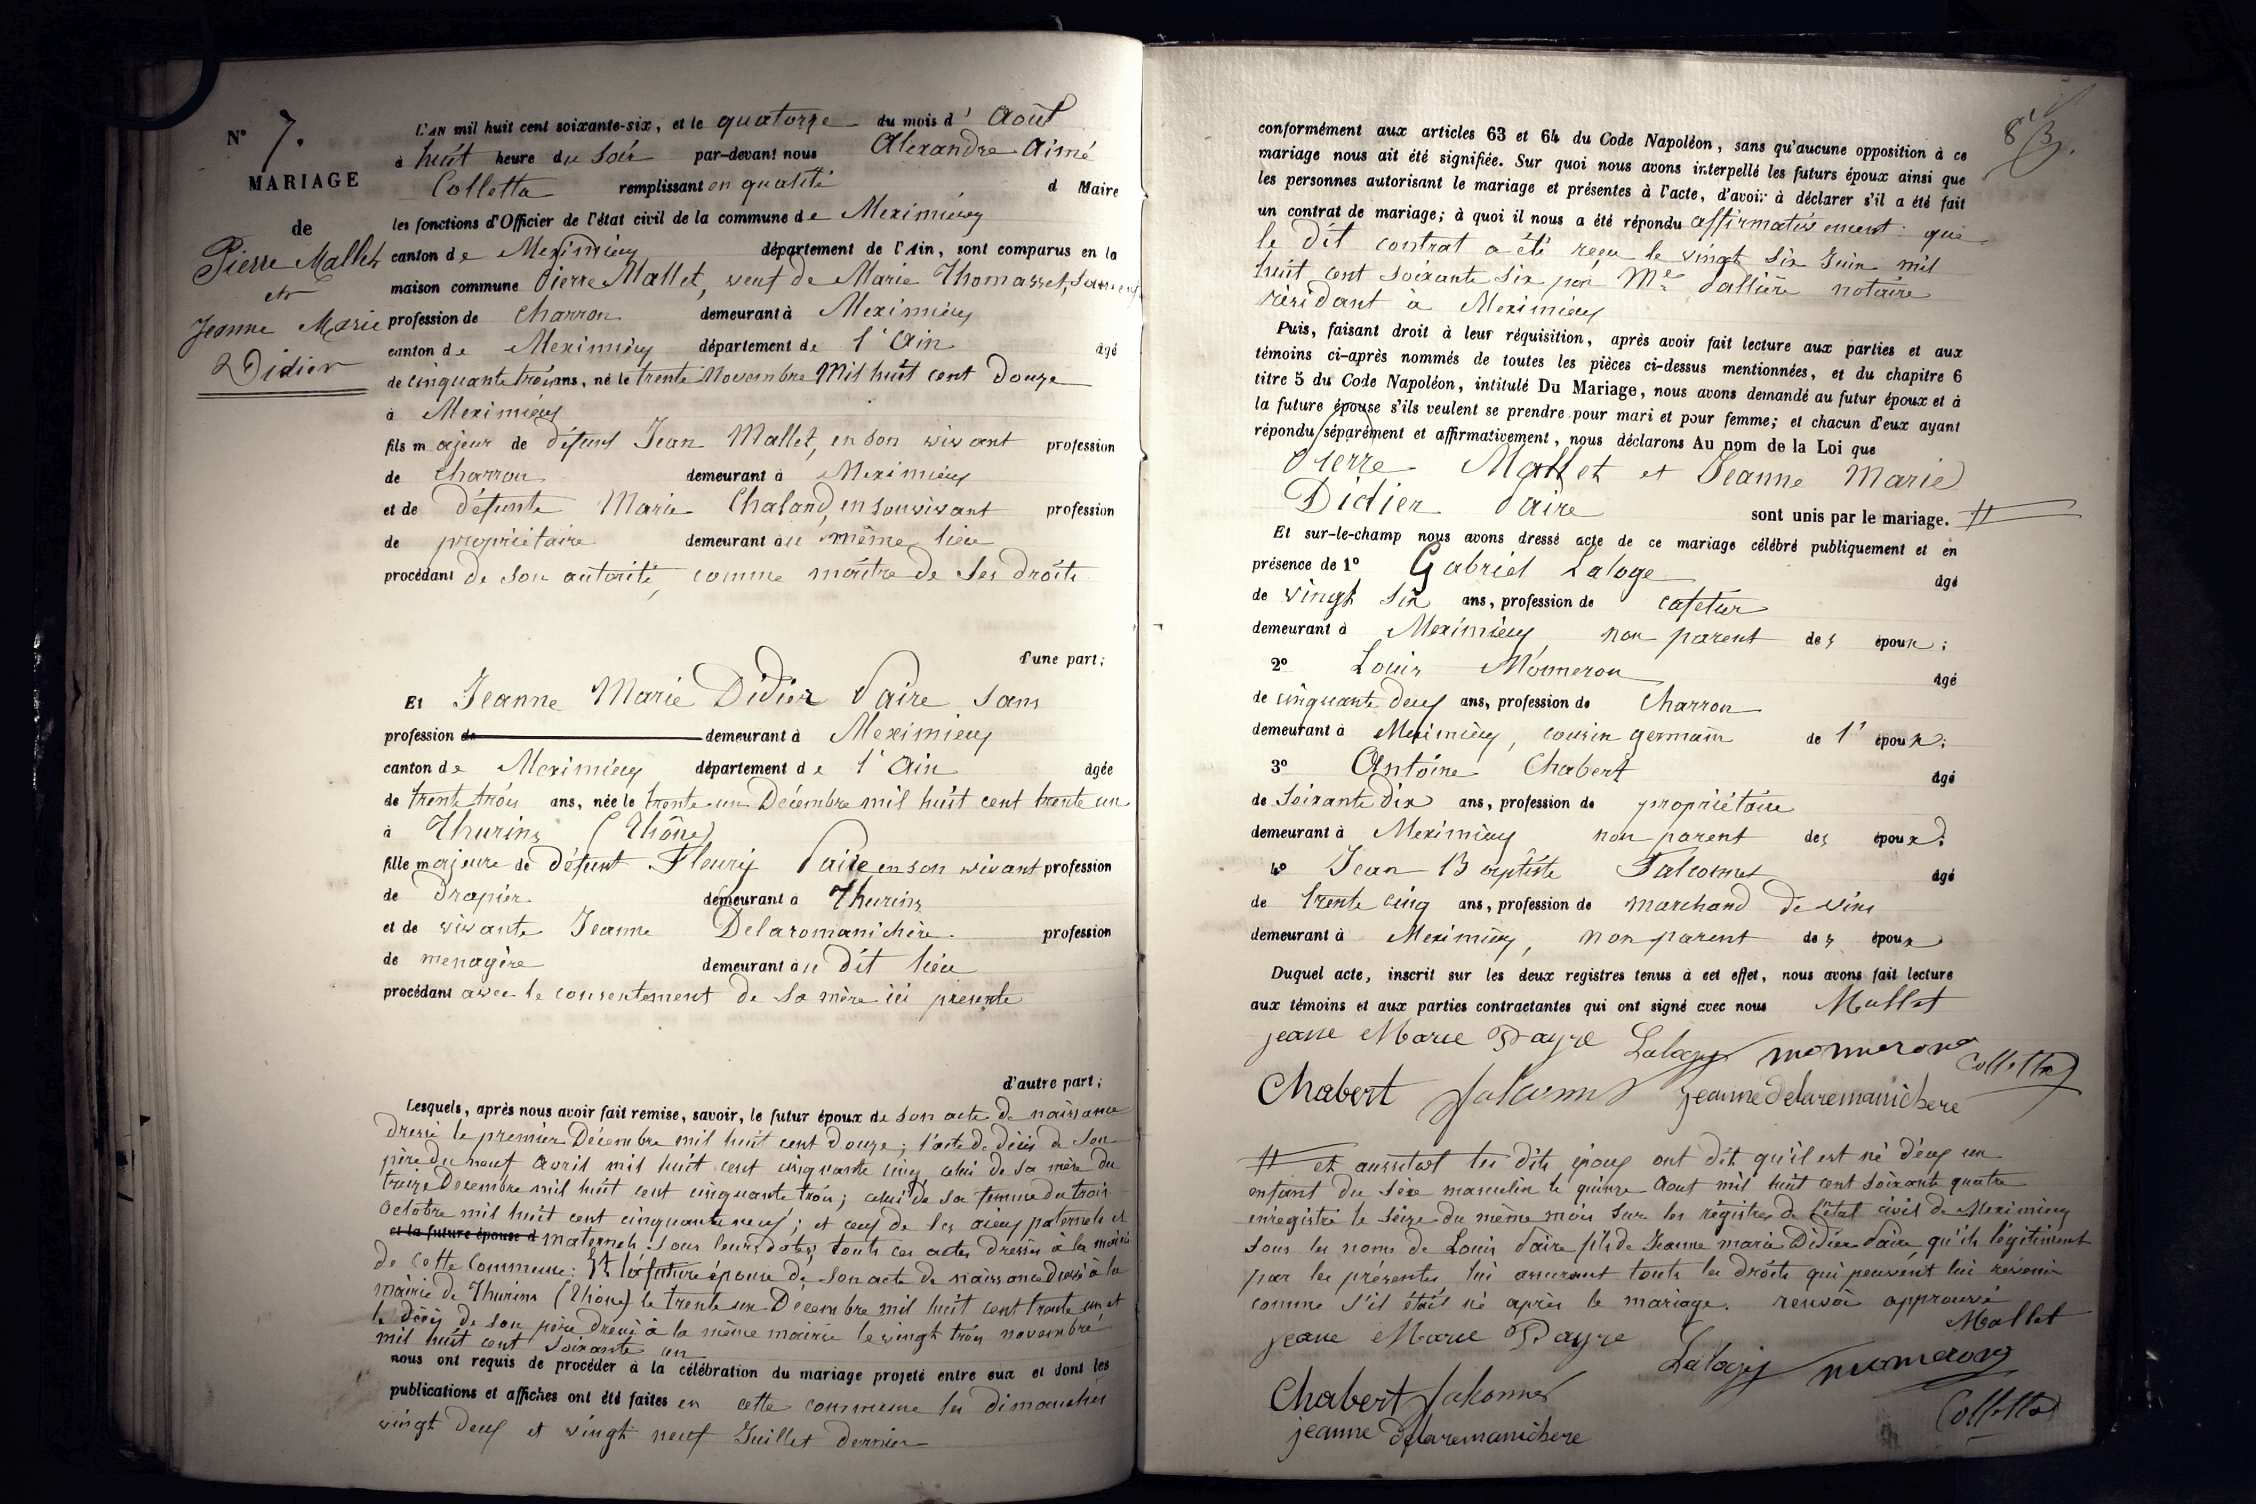 N° 7.
MARIAGE
de
Pierre Mallet
et
Jeanne Marie
Didier
L'AN mil huit cent soixante-six, et le quatorze du mois d' Août
à huit heure du soir par-devant nous Alexandre Aimé
Colletta remplissant en qualité d Maire
les fonctions d'Officier de l'état civil de la commune de Meximieux
canton de Meximieux département de l'Ain, sont comparus en la
maison commune Pierre Mallet, veuf de Marie Thomasset,
profession de charron demeurant à Meximieux
canton de Meximieux département de l'Ain âgé
de cinquante trois ans, né le trente Novembre Mil huit cent douze
à Meximieux
fils majeur de défunt Jean Mallet, en son vivant profession
de charron demeurant à Meximieux
et de défunte Marie Chaland, en son vivant profession
de propriétaire demeurant au même lieu
procédant de son autorité, comme maître de ses droits
d'une part;
Et Jeanne Marie Didier Paire sans
profession de demeurant à Meximieux
canton de Meximieux département de l'Ain âgée
de trente trois ans, née le trente un Décembre mil huit cent trente un
à Thurins (Rhône)
fille majeure de défunt Fleury Paire en son vivant profession
de Drapier demeurant à Thurins
et de vivante Jeanne Delaromanichère profession
de menagère demeurant au dit lieu
procédant avec le consentement de sa mère ici présente
d'autre part;
Lesquels, après nous avoir fait remise, savoir, le futur époux de son acte de naissance
dressé le premier Décembre mil huit cent douze; l'acte de décès de son
père du neuf Avril mil huit cent cinquante cinq, celui de sa mère du
treize Décembre mil huit cent cinquante trois; celui de sa femme du trois
Octobre mil huit cent cinquante neuf; et ceux de ses aieux paternels et
et la future épouse d maternels sous leurs dates, touts ces actes dressés à la mairie
de cette commune: Et la future épouse de son acte de naissance dressé à la
mairie de Thurins (Rhône) le trente un Décembre mil huit cent trente un et
le décès de son père dressé à la même mairie le vingt trois novembre
mil huit cent soixante un
nous ont requis de procéder à la célébration du mariage projeté entre eux et dont les
publications et affiches ont été faites en cette commune les dimanches
vingt deux et vingt neuf Juillet dernier
8
conformément aux articles 63 et 64 du Code Napoléon, sans qu'aucune opposition à ce
mariage nous ait été signifiée. Sur quoi nous avons interpellé les futurs époux ainsi que
les personnes autorisant le mariage et présentes à l'acte, d'avoir à déclarer s'il a été fait
un contrat de mariage; à quoi il nous a été répondu affirmativement: que
le dit contrat a été reçu le vingt six Juin mil
huit cent soixante six par Me Pallière notaire
résidant à Meximieux
Puis, faisant droit à leur réquisition, après avoir fait lecture aux parties et aux
témoins ci-après nommés de toutes les pièces ci-dessus mentionnées, et du chapitre 6
titre 5 du Code Napoléon, intitulé Du Mariage, nous avons demandé au futur époux et à
la future épouse s'ils veulent se prendre pour mari et pour femme; et chacun d'eux ayant
répondu séparément et affirmativement, nous déclarons Au nom de la Loi que
Pierre Mallet et Jeanne Marie
Didier Paire sont unis par le mariage. #
Et sur-le-champ nous avons dressé acte de ce mariage célébré publiquement et en
présence de 1° Gabriel Laloge âgé
de vingt six ans, profession de cafetier
demeurant à Meximieux non parent des époux;
2° Louis Momeron âgé
de cinquante deux ans, profession de charron
demeurant à Meximieux, cousin germain de l' époux;
3° Antoine Chabert âgé
de Soixante dix ans, profession de propriétaire
demeurant à Meximieux non parent des époux;
4° Jean Baptiste Falconnet âgé
de trente cinq ans, profession de marchand de vins
demeurant à Meximieux, non parent des époux
Duquel acte, inscrit sur les deux registres tenus à cet effet, nous avons fait lecture
aux témoins et aux parties contractantes qui ont signé avec nous Mallet
jeane Marie Payre Laloge momeron Colletta
Chabert jeanne delaremanichere
# et aussitot les dits époux ont dit qu'il est né d'eux un
enfant du sèxe masculin le quinze Août mil huit cent soixante quatre
enregistré le seize du même mois sur les régistres de l'état civil de Meximieux
sous les noms de Louis Paire fils de Jeanne marie Didier Paire, qu'ils légitiment
par les présentes, lui assurant touts les droits qui peuvent lui revenir
comme s'il était né après le mariage. renvoi approuvé
Mallet
jeane Marie Payre Laloge momeron
Chabert
jeanne delaremanichere Colletta